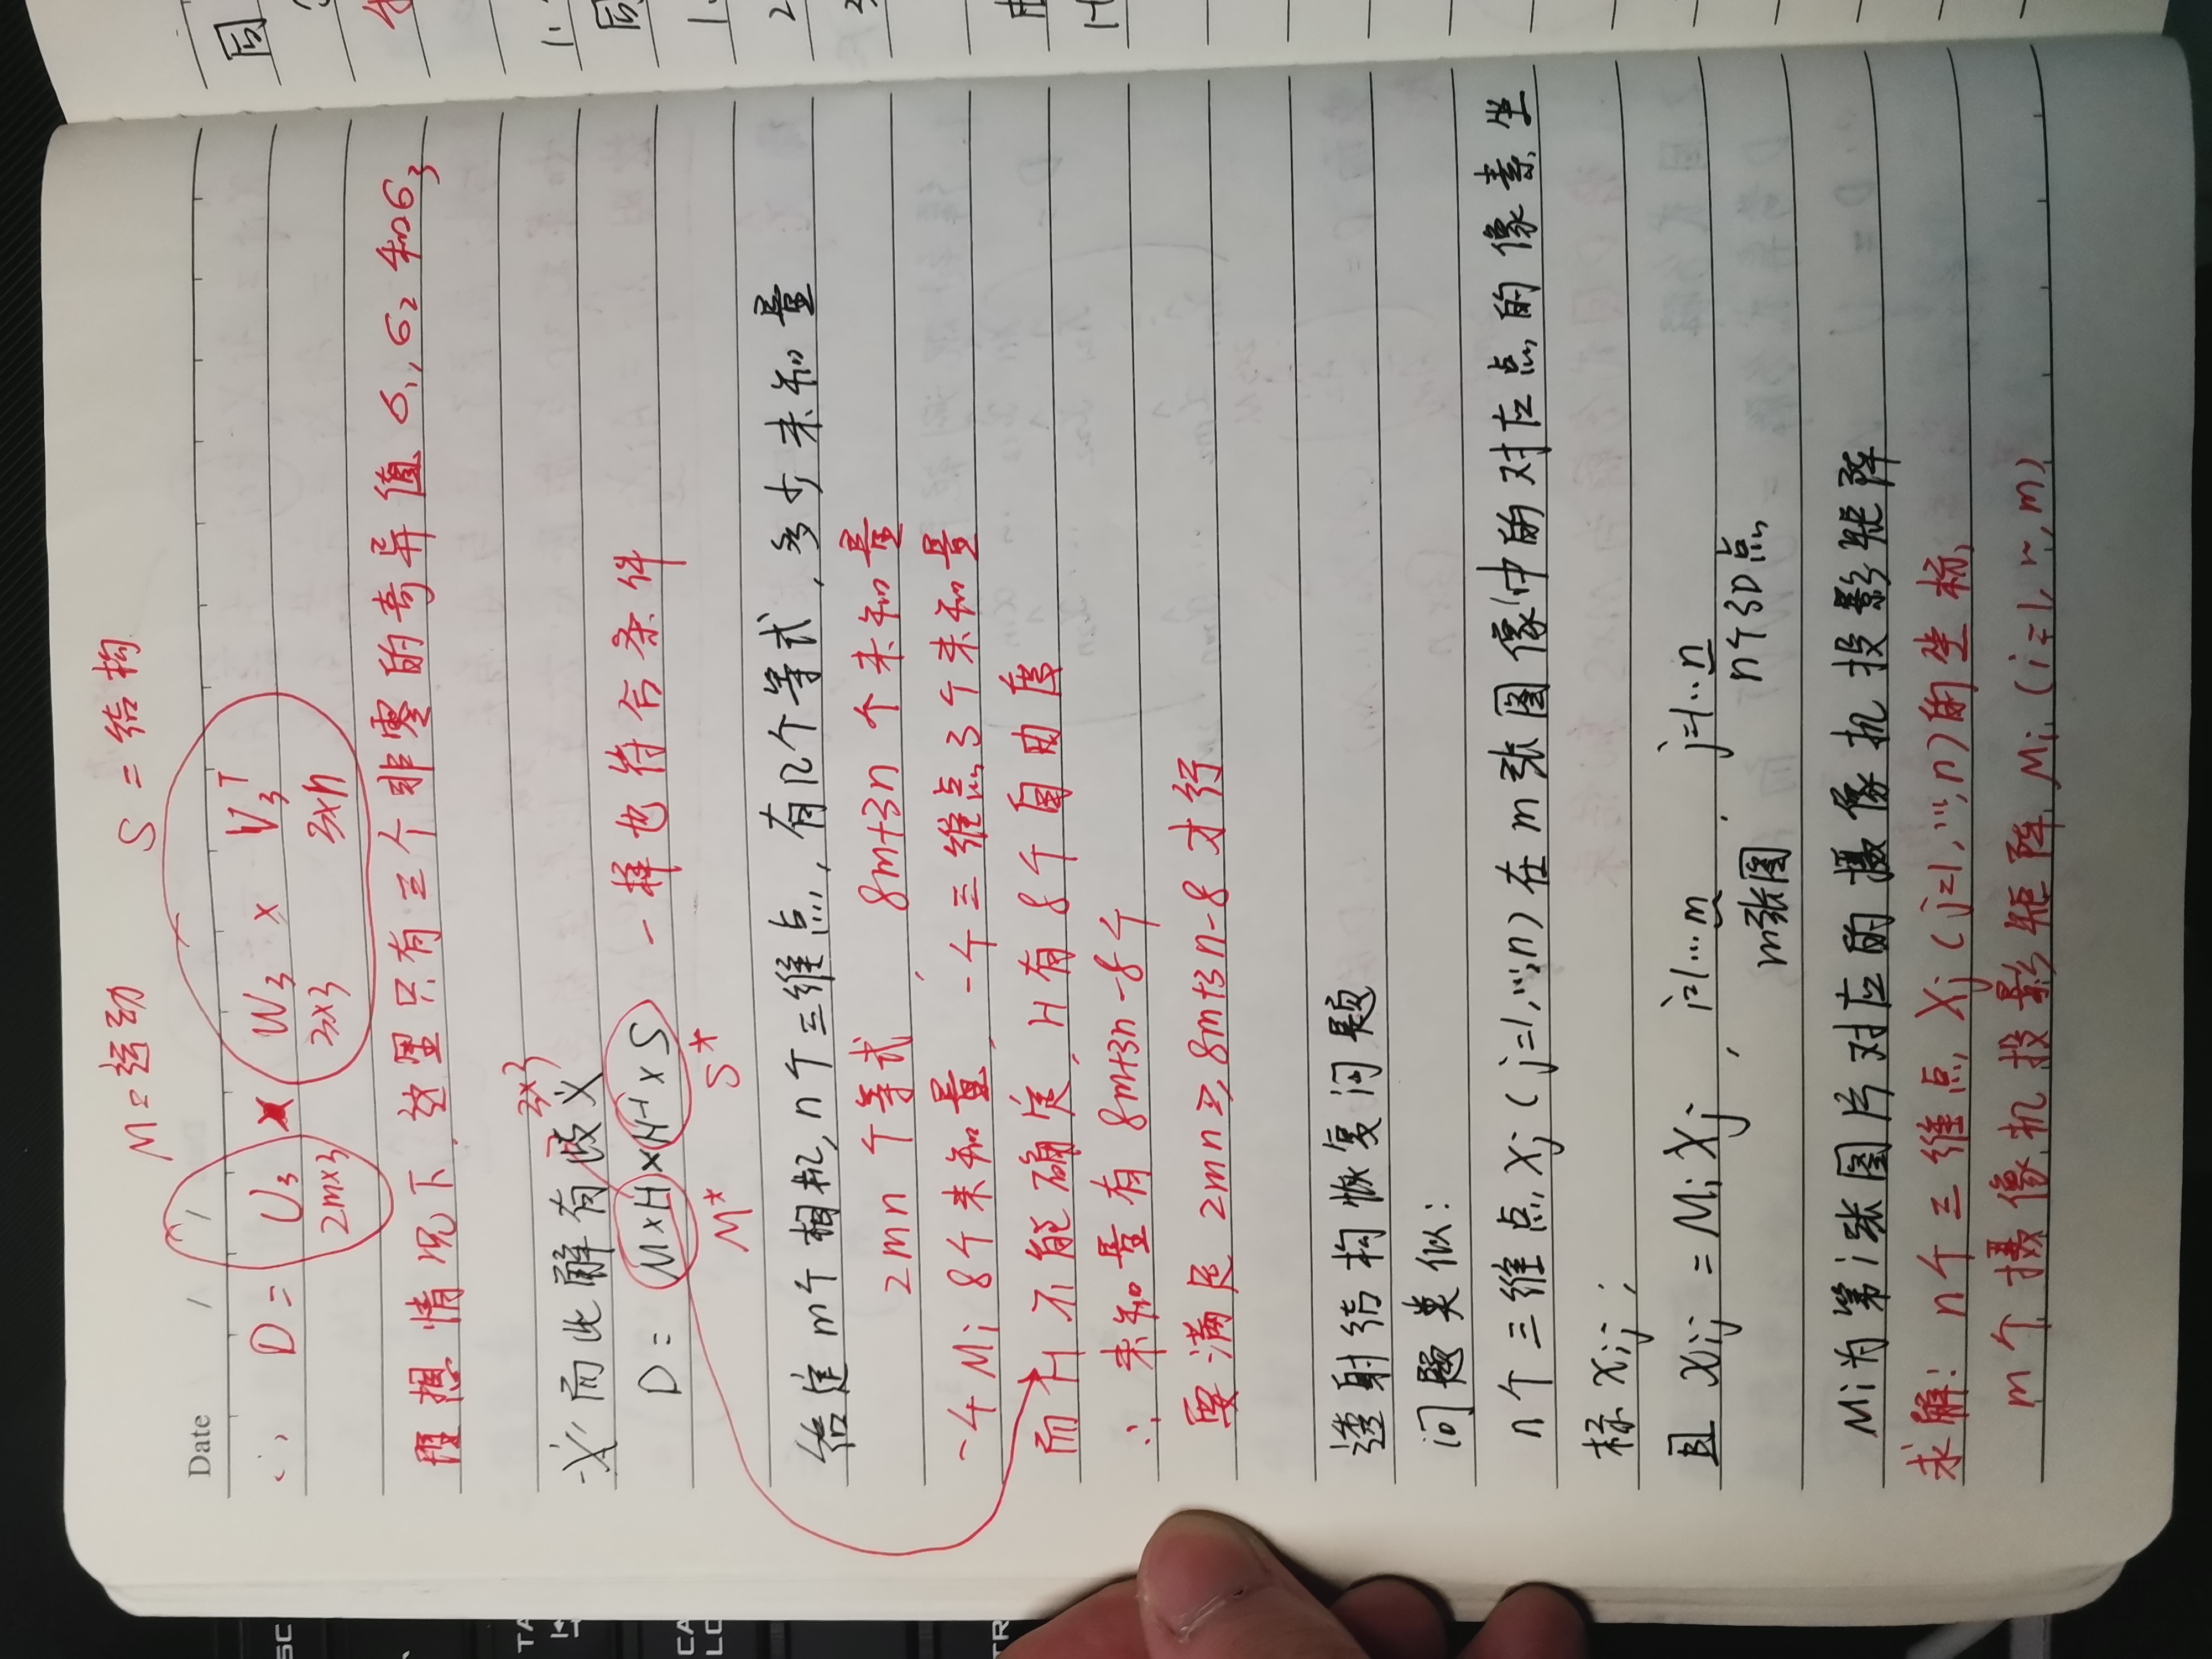 M=运动 S=结构
Date / /
∴ D = U₃ × W₃ × V₃ᵀ
2m×3 3×3 3×n
理想情况下,这里只有三个非零的奇异值 σ₁,σ₂和σ₃
3×3
然而此解有歧义
D = M×H×H⁻¹×S 一样也符合条件
M* S*
给定m个相机,n个三维点,有几个等式,多少未知量
2mn个等式 8m+3n个未知量
一个Mi 8个未知量,一个三维点3个未知量
而H不能确定,H有8个自由度
∴ 未知量有8m+3n-8个
要满足 2mn≥8m+3n-8才行
透射结构恢复问题
问题类似:
n个三维点Xj(j=1,…,n)在m张图像中的对应点的像素坐
标xij;
且 xij = MiXj, i=1…m, j=1…n
m张图 n个3D点
Mi为第i张图片对应的摄像机投影矩阵
求解:n个三维点Xj(j=1,…,n)的坐标
m个摄像机投影矩阵Mi(i=1,~,m)